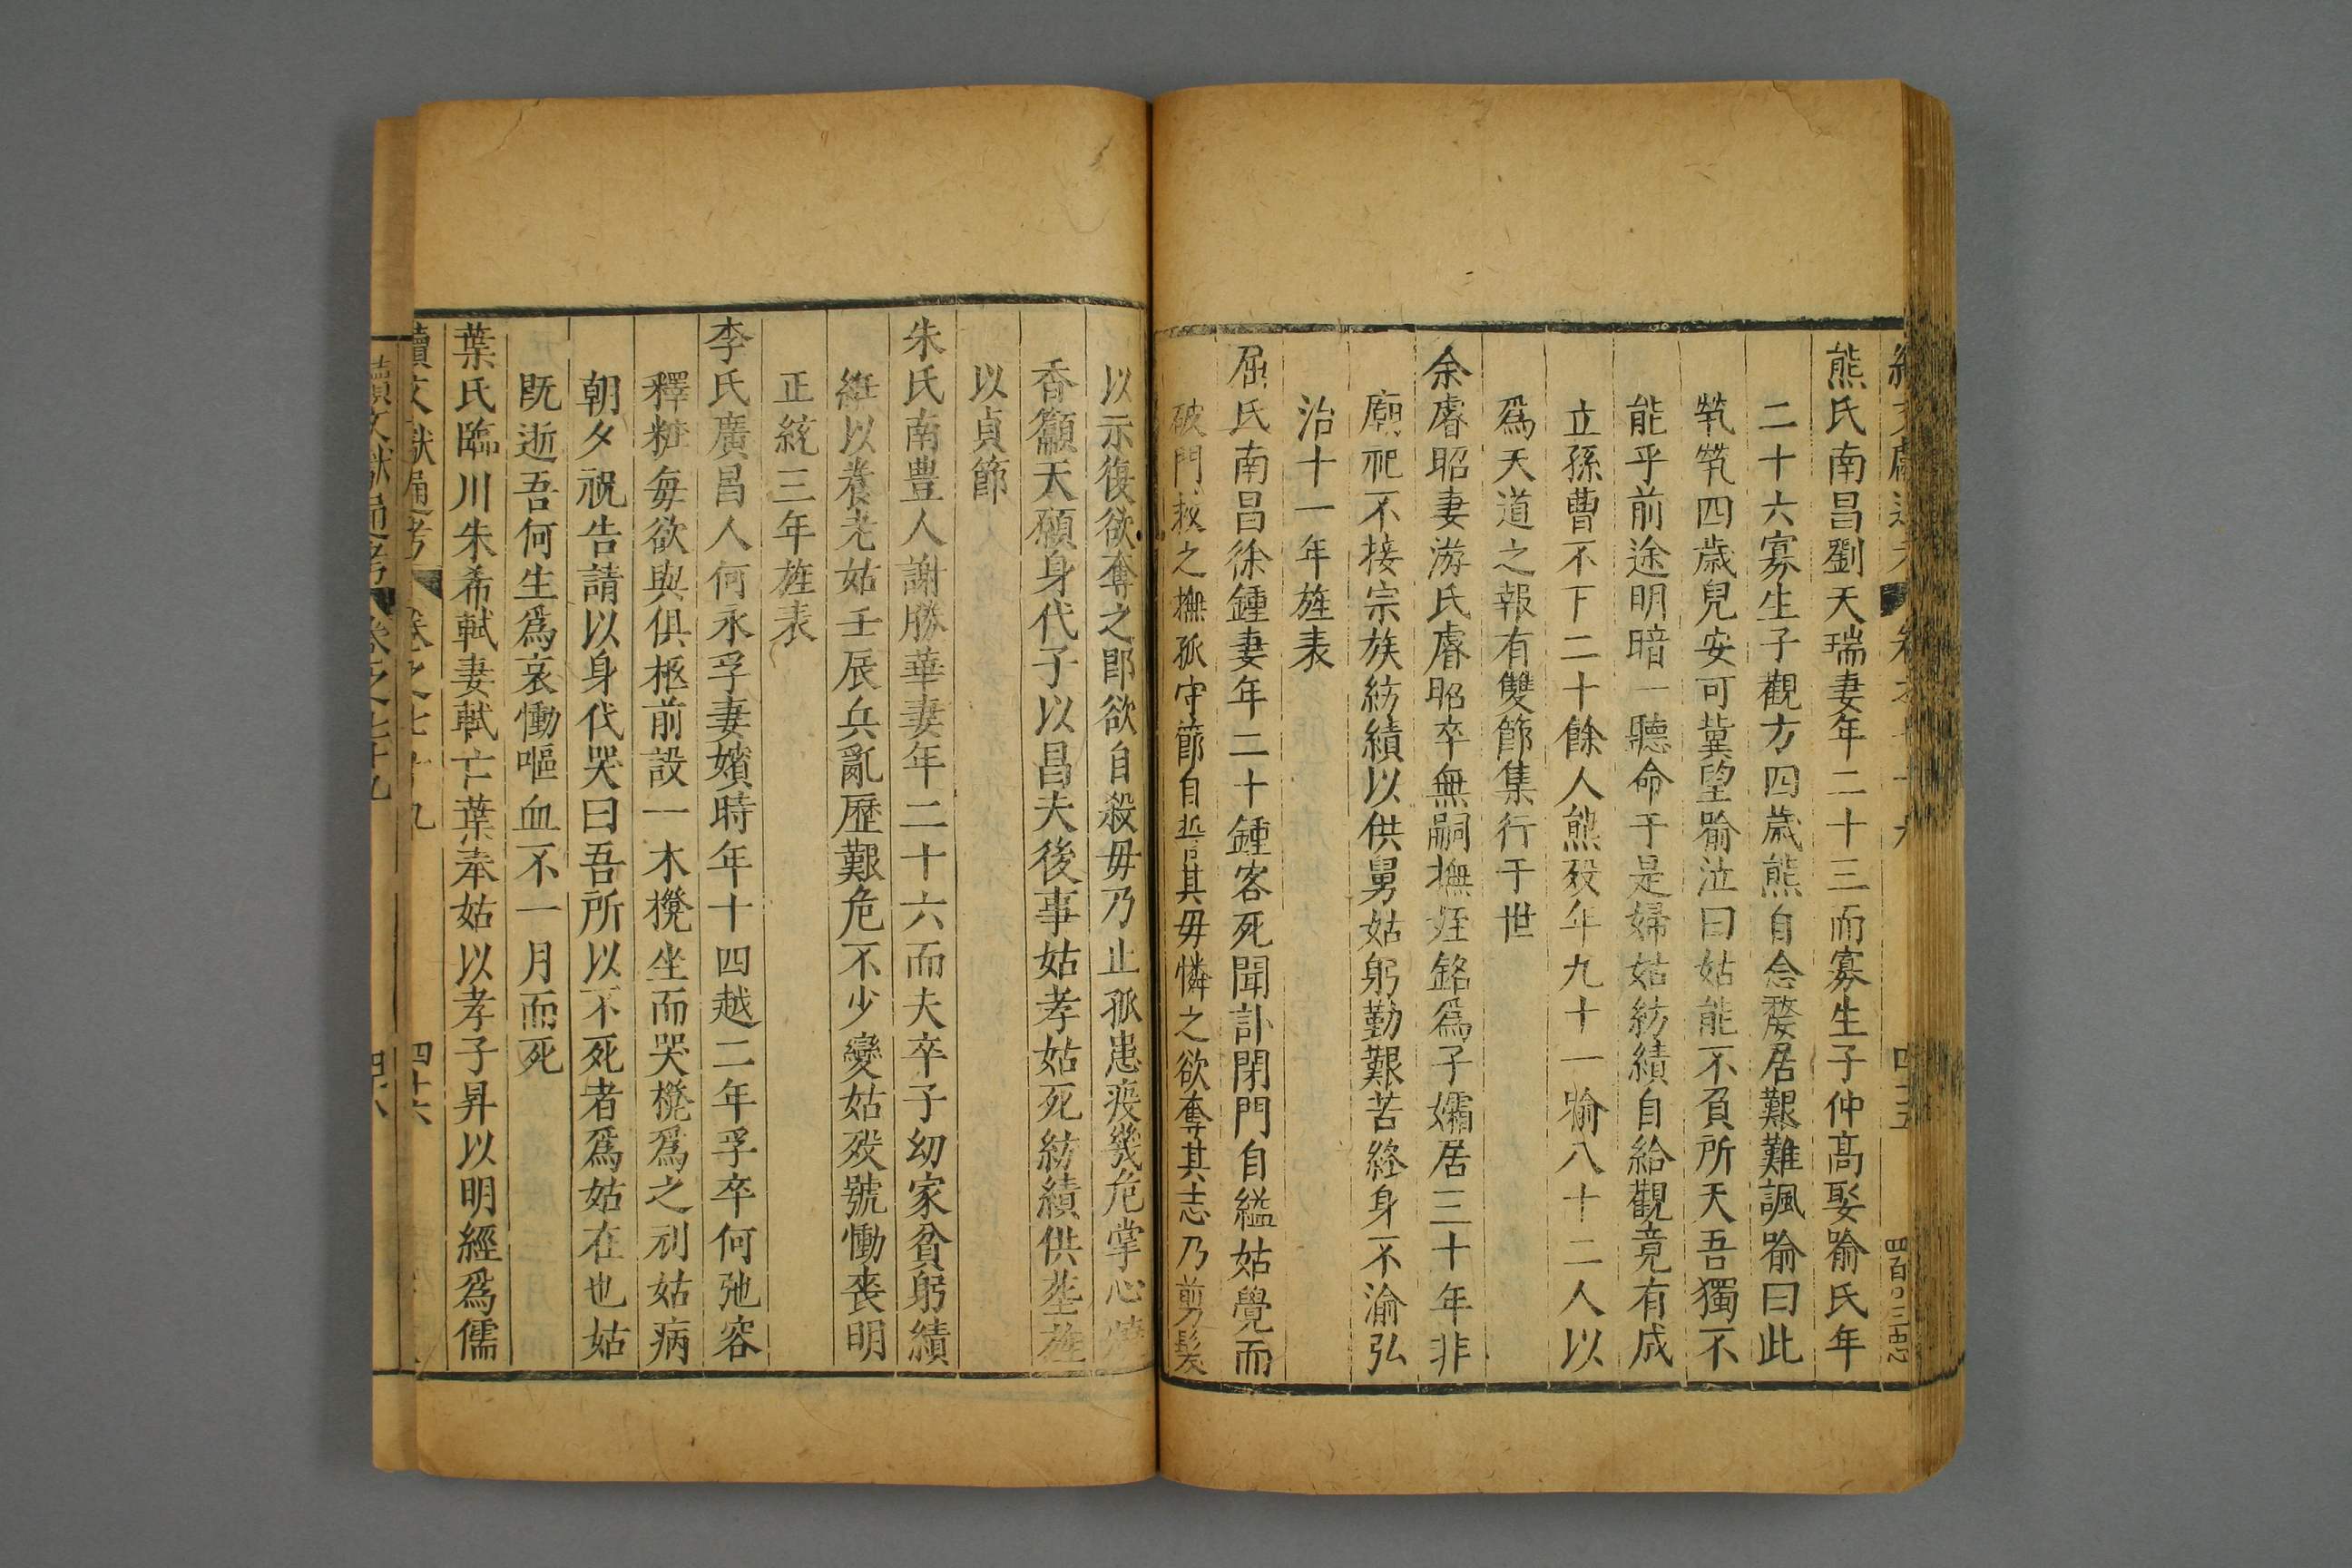 熊氏南昌劉天瑞妻年二十三而寡生子仲髙娶喻氏年
二十六寡生子觀方四歳熊自念嫠居艱難諷喻曰此
煢煢四歳兒安可冀望喻泣曰姑能不負所天吾獨不
能乎前途明暗一聽命于是婦姑紡績自給觀竟有成
立孫曹不下二十餘人熊歿年九十一喻八十二人以
爲天道之報有雙節集行于世
余睿昭妻游氏睿昭卒無嗣撫姪銘爲子孀居三十年非
廟祀不接宗族紡績以供舅姑躬勤艱苦終身不渝弘
治十一年旌表
屈氏南昌徐鍾妻年二十鍾客死聞訃閉門自縊姑覺而
破門救之撫孤守節自誓其毋憐之欲奪其志乃剪髪
以示復欲奪之卽欲自殺毋乃止孤患疾幾危掌心燒
香籲天願身代子以昌夫後事姑孝姑死紡績供塟旌
以貞節
朱氏南豊人謝勝華妻年二十六而夫卒子幼家貧躬績
維以養老姑壬辰兵亂歷艱危不少變姑歿號慟喪明
正統三年旌表
李氏廣昌人何永孚妻嬪時年十四越二年孚卒何弛容
釋粧毎欲與俱柩前設一木櫈坐而哭櫈爲之刓姑病
朝夕祝告請以身代哭曰吾所以不死者爲姑在也姑
旣逝吾何生爲哀慟嘔血不一月而死
葉氏臨川朱希軾妻軾亡葉奉姑以孝子昇以明經爲儒
續文獻通考 卷之七十九 四十六
續文獻通考 卷之七十九